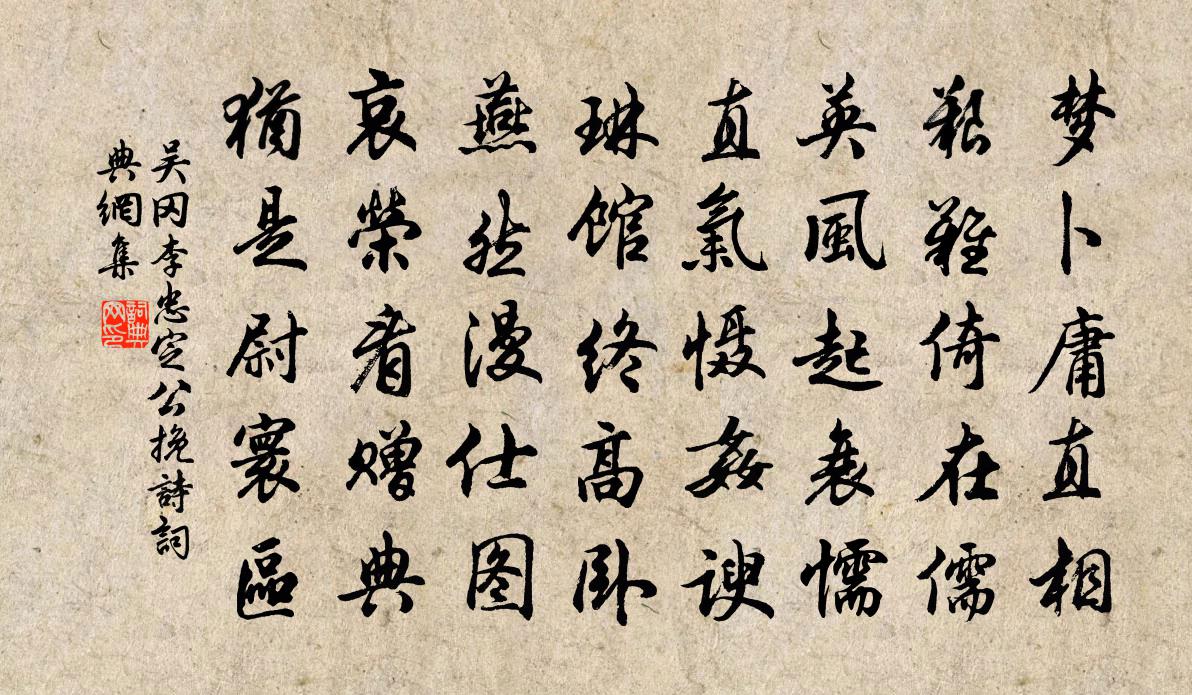 梦卜庸直相
艱難倚在儒
英風起衰懦
直氣慑姦諛
琳馆终高卧
燕然漫仕图
哀榮看赠典
猶是尉寰區
吴冈李忠定公挽詩詞
典網集
詞典